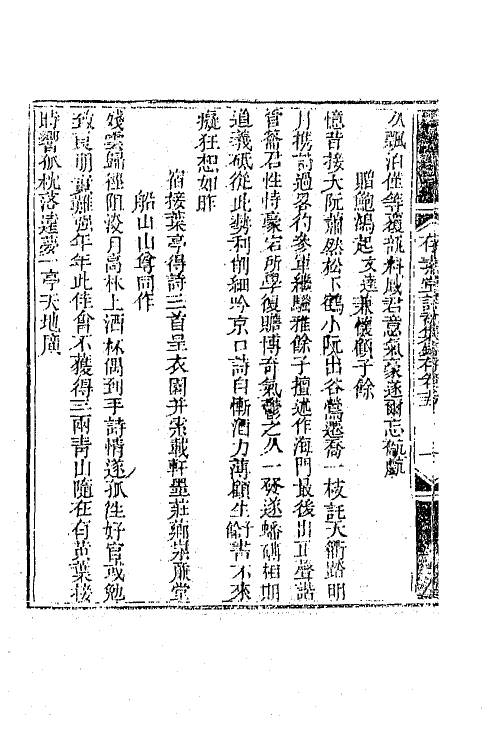 久飄泊僅等覆瓿料感君意氣豪遂爾忘
贈鮑鴿起文逵兼懷顧子餘
憶昔接大阮蕭然松下鶴小阮出谷鶯遷喬一枝託天衢踏明
月携詩過畧彴參軍繼騷雅餘子擅述作海門最後出直聲諧
管籥君性特豪宕所學復贍博奇氣鬱之久一發遂蟠礴相期
道義砥從此勢利削細吟京口詩自慚酒力薄顧生好書不來
癡狂想如昨
宿接葉亭得詩三首呈衣園并索載軒墨莊薌泉廉堂
船山山尊同作
殘雲歸徑阻淡月高林上酒杯偶到手詩情遂孤往好官或勉
致良朋實難強年年此佳會不獲得三兩青山隨在有黃葉接
時響孤枕落邊夢一亭天地廣